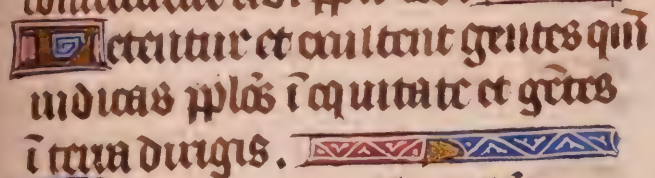 Letentur et exultent gentes qm̄
iudicas pplōs ī equitate et gētes
ī terra dirigis.